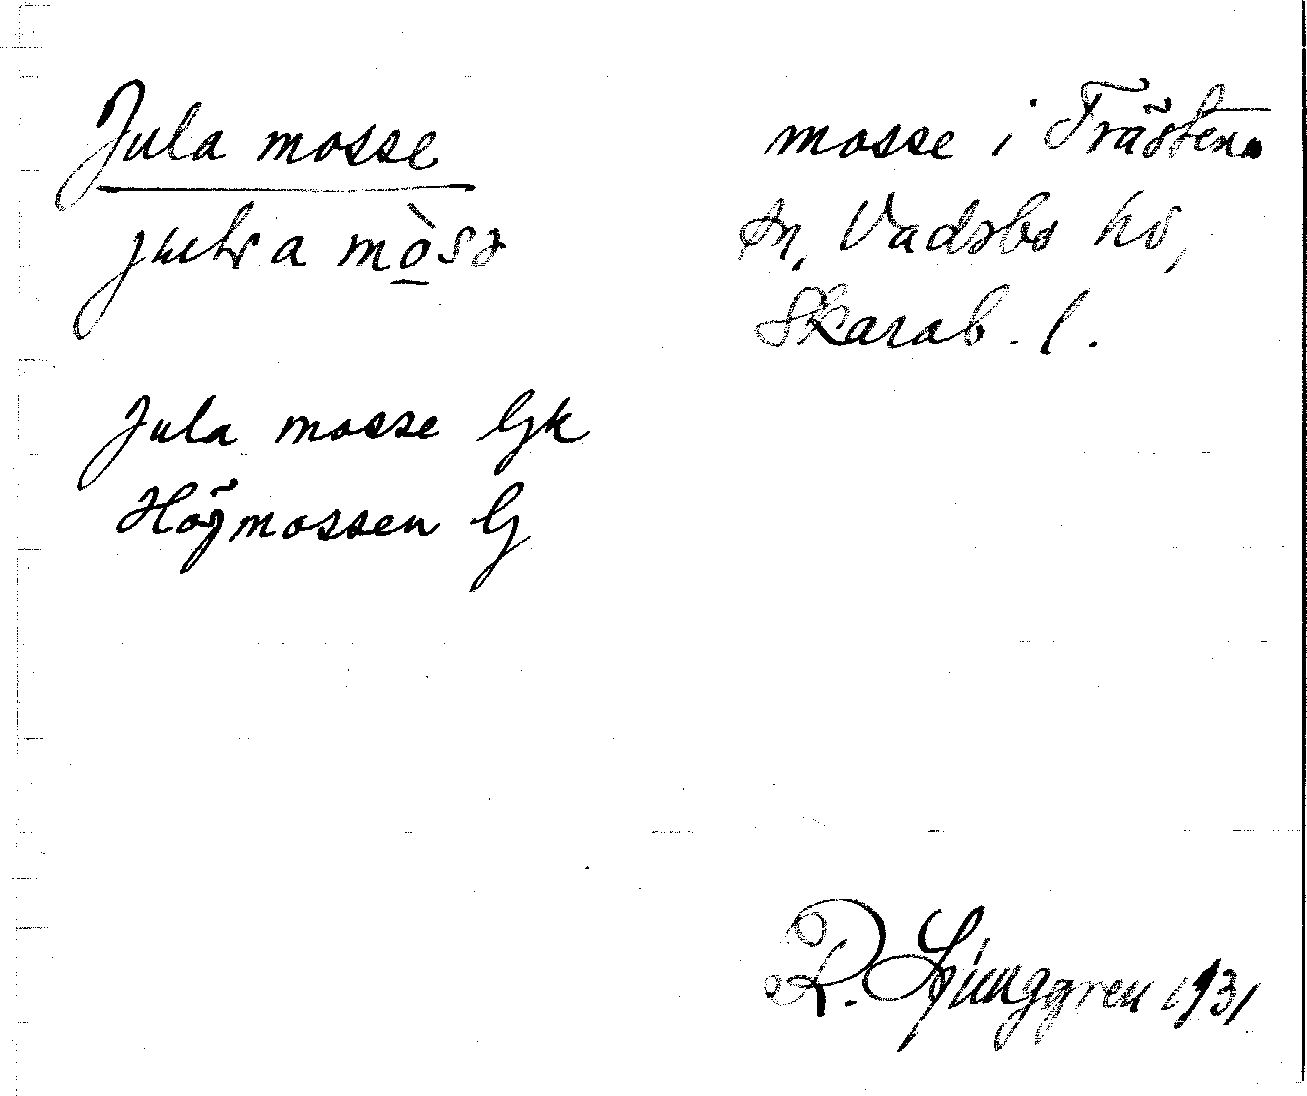 Jula mosse
mòsə
Jula mosse Gk
Högmossen G
mosse i Trästena
sn, Vadsbo hd,
Skarab. l.
R. Ljunggren 1931